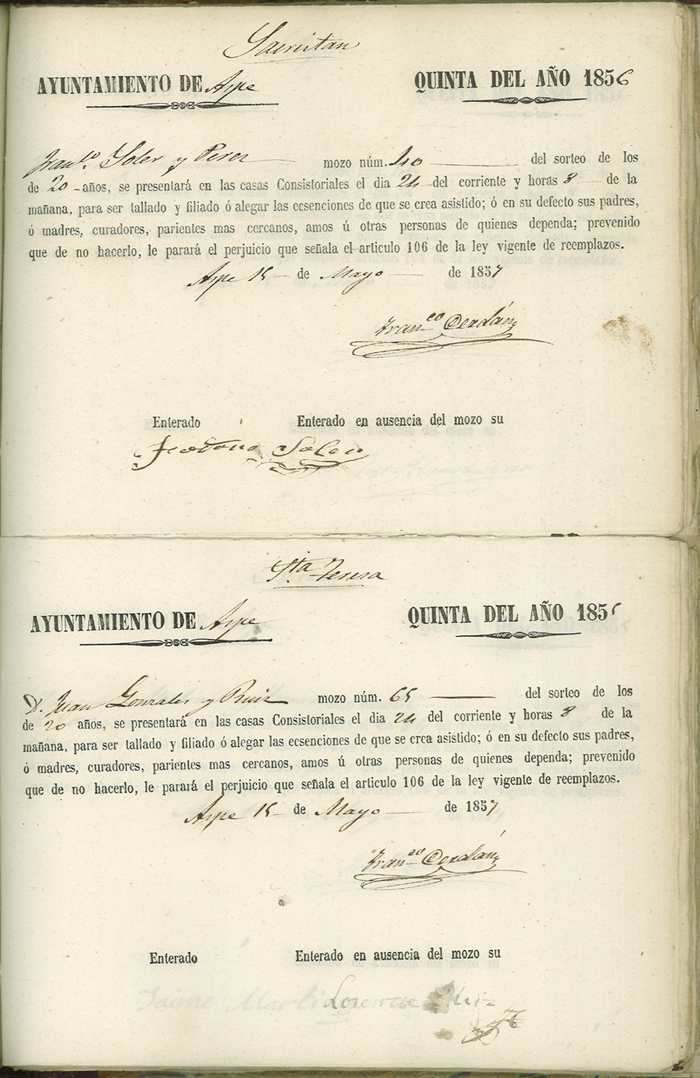 Sacristan
AYUNTAMIENTO DE Aspe QUINTA DEL AÑO 1856
Franco. Soler y Perez mozo núm. 40 del sorteo de los
de 20 años, se presentará en las casas Consistoriales el dia 24 del corriente y horas 8 de la
mañana, para ser tallado y filiado ó alegar las ecsenciones de que se crea asistido; ó en su defecto sus padres,
ó madres, curadores, parientes mas cercanos, amos ú otras personas de quienes dependa; prevenido
que de no hacerlo, le parará el perjuicio que señala el articulo 106 de la ley vigente de reemplazos.
Aspe 15 de Mayo de 1857
Franco Cerdán
Enterado Enterado en ausencia del mozo su
Soler
Sta. Teresa
AYUNTAMIENTO DE Aspe QUINTA DEL AÑO 185
D. Juan Gonzales y Ruiz mozo núm. 65 del sorteo de los
de 20 años, se presentará en las casas Consistoriales el dia 24 del corriente y horas 8 de la
mañana, para ser tallado y filiado ó alegar las ecsenciones de que se crea asistido; ó en su defecto sus padres,
ó madres, curadores, parientes mas cercanos, amos ú otras personas de quienes dependa; prevenido
que de no hacerlo, le parará el perjuicio que señala el articulo 106 de la ley vigente de reemplazos.
Aspe 15 de Mayo de 1857
Franco Cerdán
Enterado Enterado en ausencia del mozo su
Jaime Marti Lorenza Ruiz